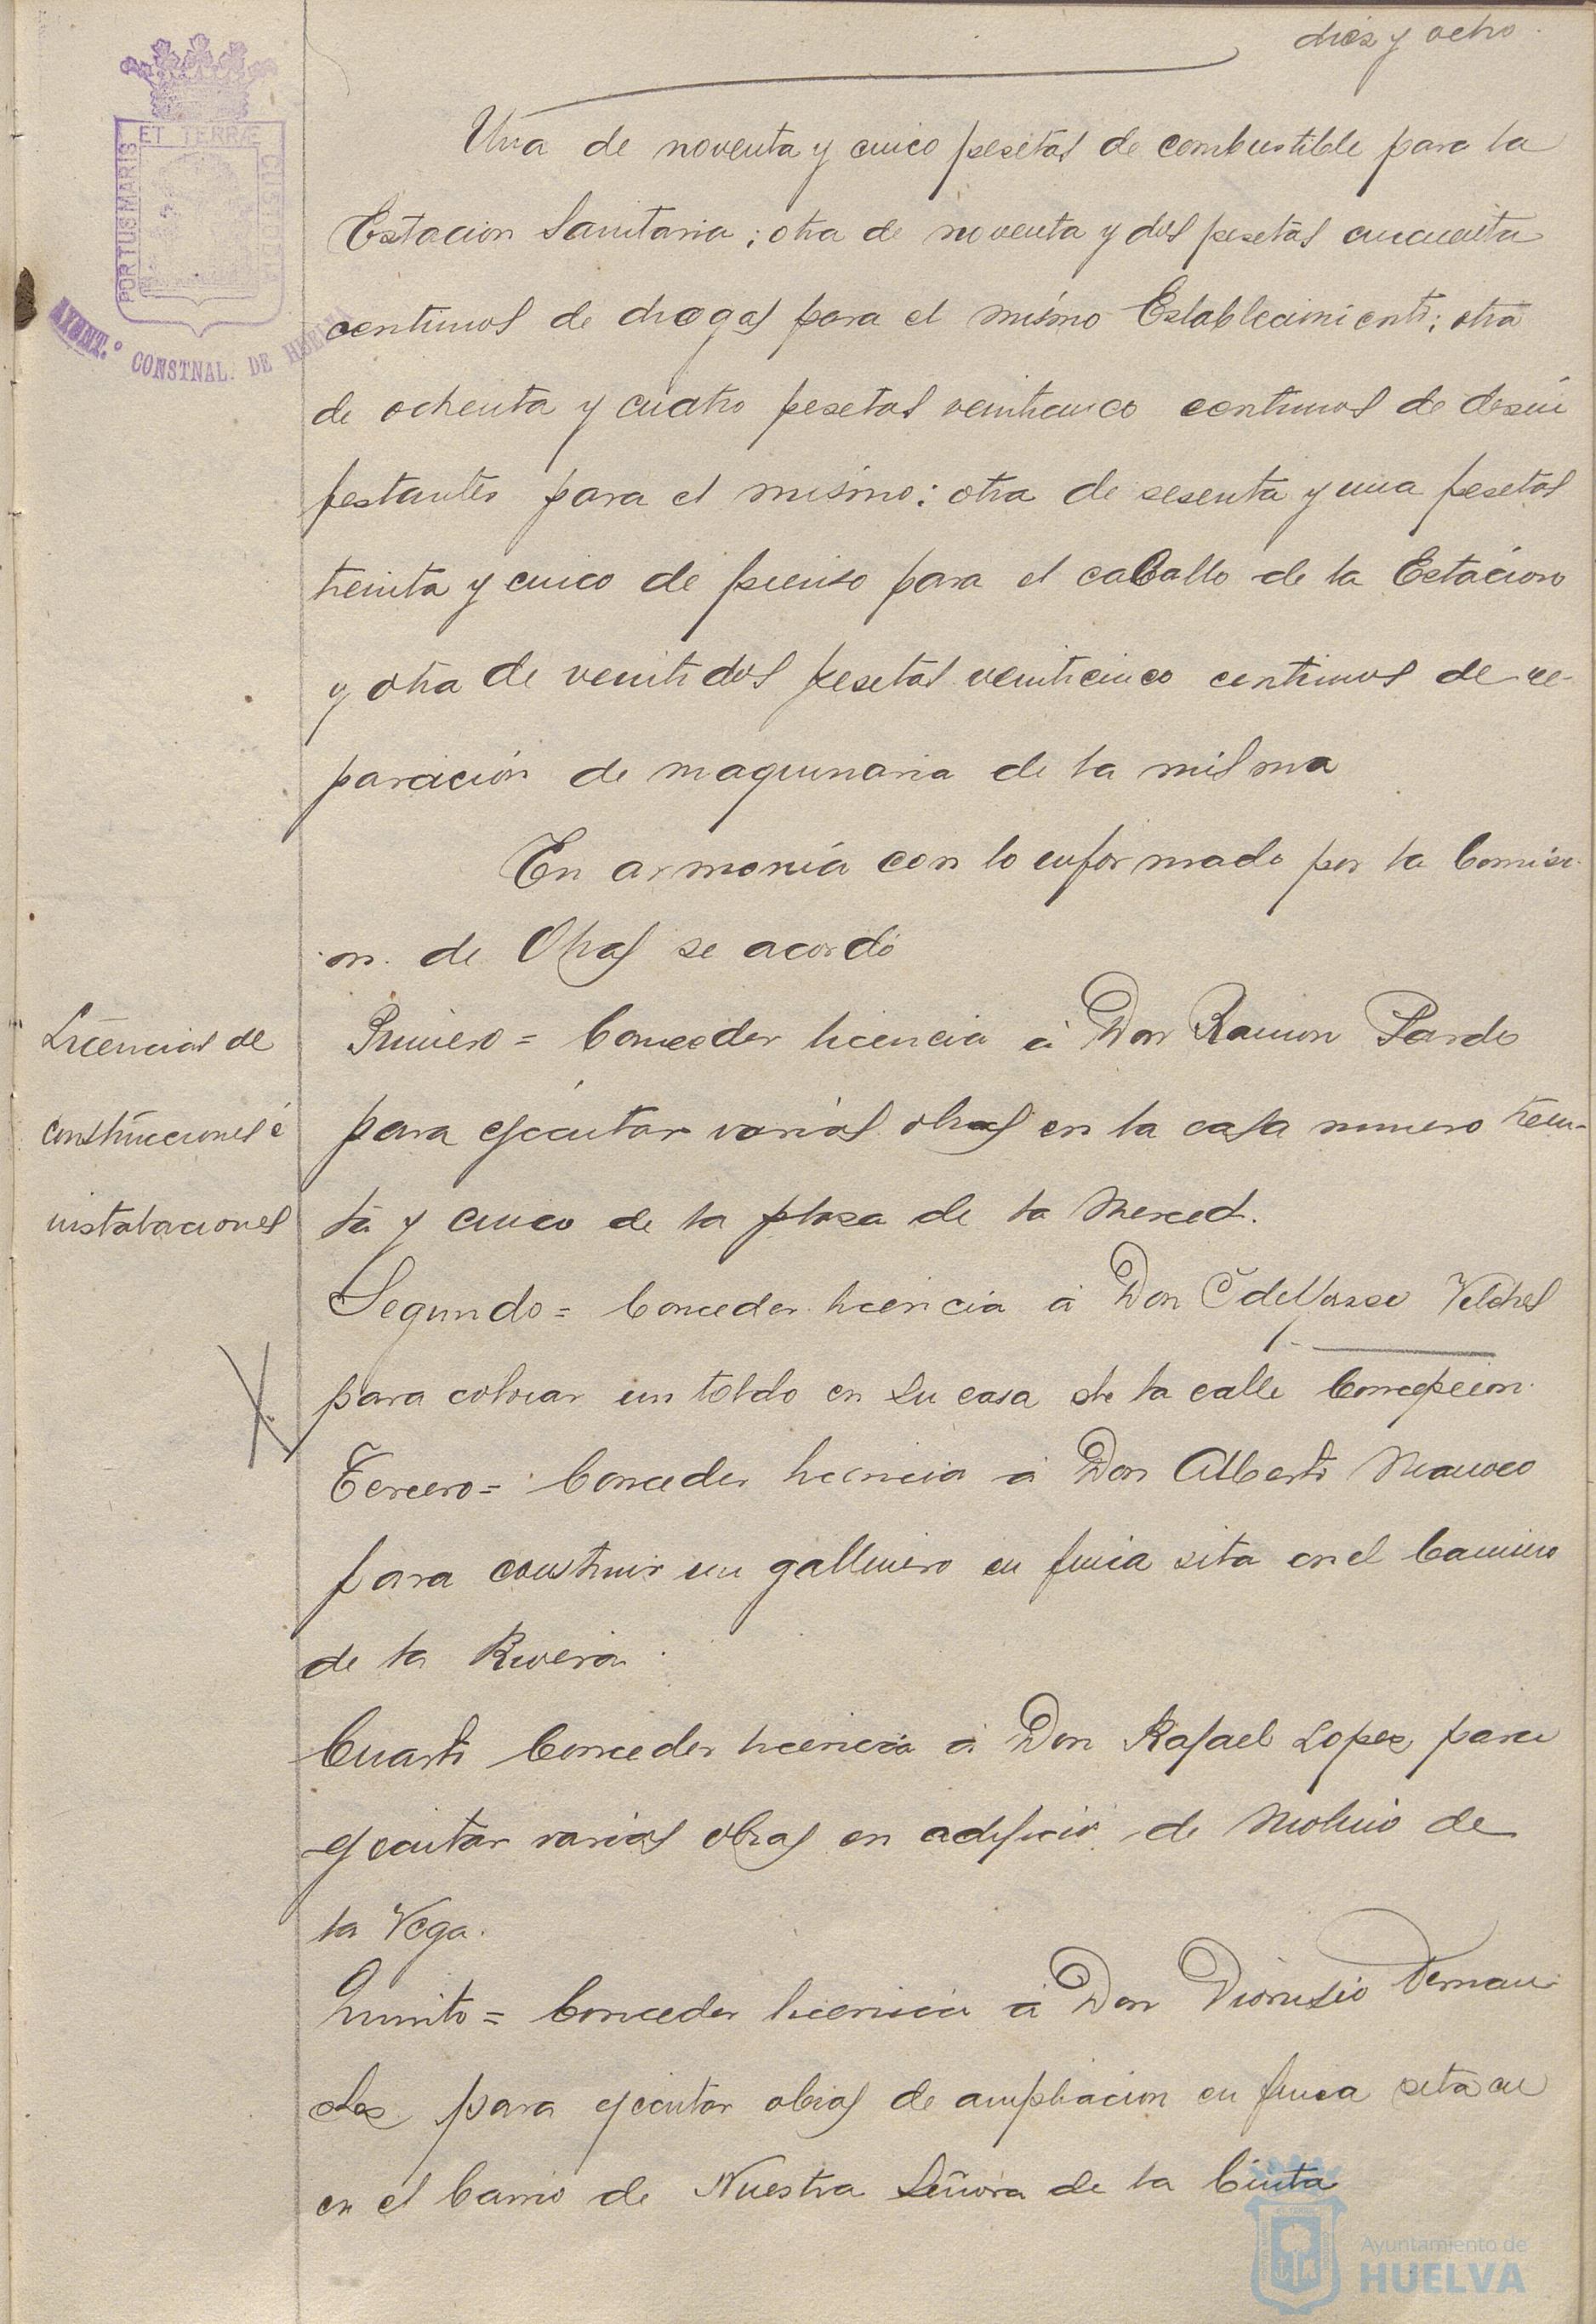 diez y ocho
Una de noventa y cinco pesetas de combustible para la
Estacion Sanitaria; otra de noventa y dos pesetas cincuenta
centimos de drogas para el mismo Establecimiento; otra
de ochenta y cuatro pesetas veinticinco centimos de desin
festantes para el mismo; otra de sesenta y una pesetas
treinta y cinco de pienso para el caballo de la Estacion
y otra de veintidos pesetas veinticinco centimos de re-
paración de maquinaria de la misma
En armonía con lo informado por la Comisi
on de Obras se acordó
Licencias de
construcciones é
instalaciones
Primero = Conceder licencia á Don Ramon Pardo
para ejecutar varias obras en la casa numero trein-
ta y cinco de la plaza de la Merced.
Segundo = Conceder licencia á Don Ildefonso Vilches
para colocar un toldo en su casa de la calle Concepcion.
Tercero = Conceder licencia á Don Alberto
para construir un gallinero en finca sita en el Camino
de la Rivera.
Cuarto Conceder licencia á Don Rafael Lopez para
ejecutar varias obras en edificio de Molino de
la Vega.
Quinto = Conceder licencia á Don Dionisio Fernan
dez para ejecutar obras de ampliacion en finca sita en
en el barrio de Nuestra Señora de la Cinta
PORTUS MARIS ET TERRÆ CUSTODIA
AYUNT.º CONSTNAL. DE HUELVA
Ayuntamiento de
HUELVA